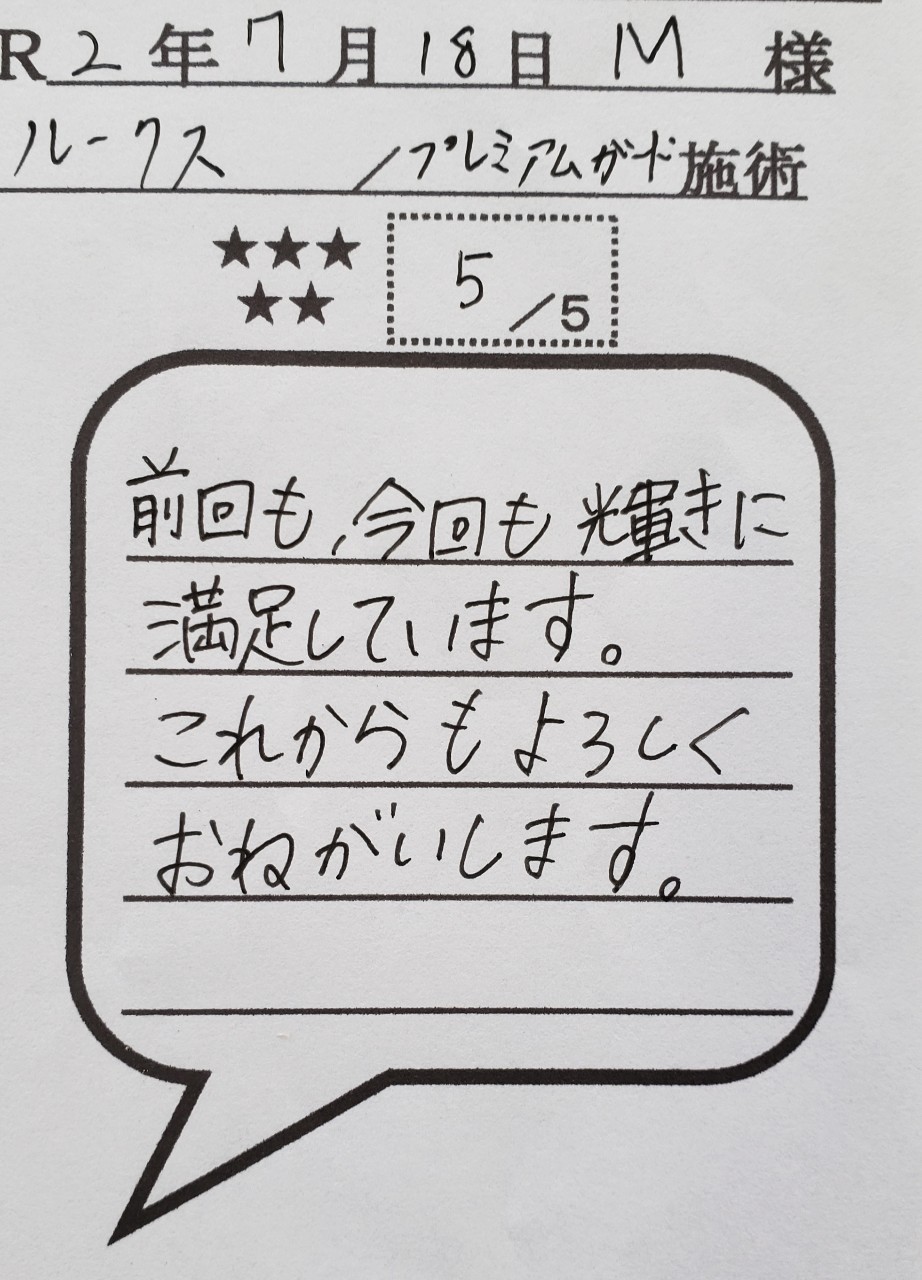 R2年7月18日 M 様
ルークス /プレミアムガード施術
★★★
★★
5/5
前回も、今回も輝きに
満足しています。
これからもよろしく
おねがいします。